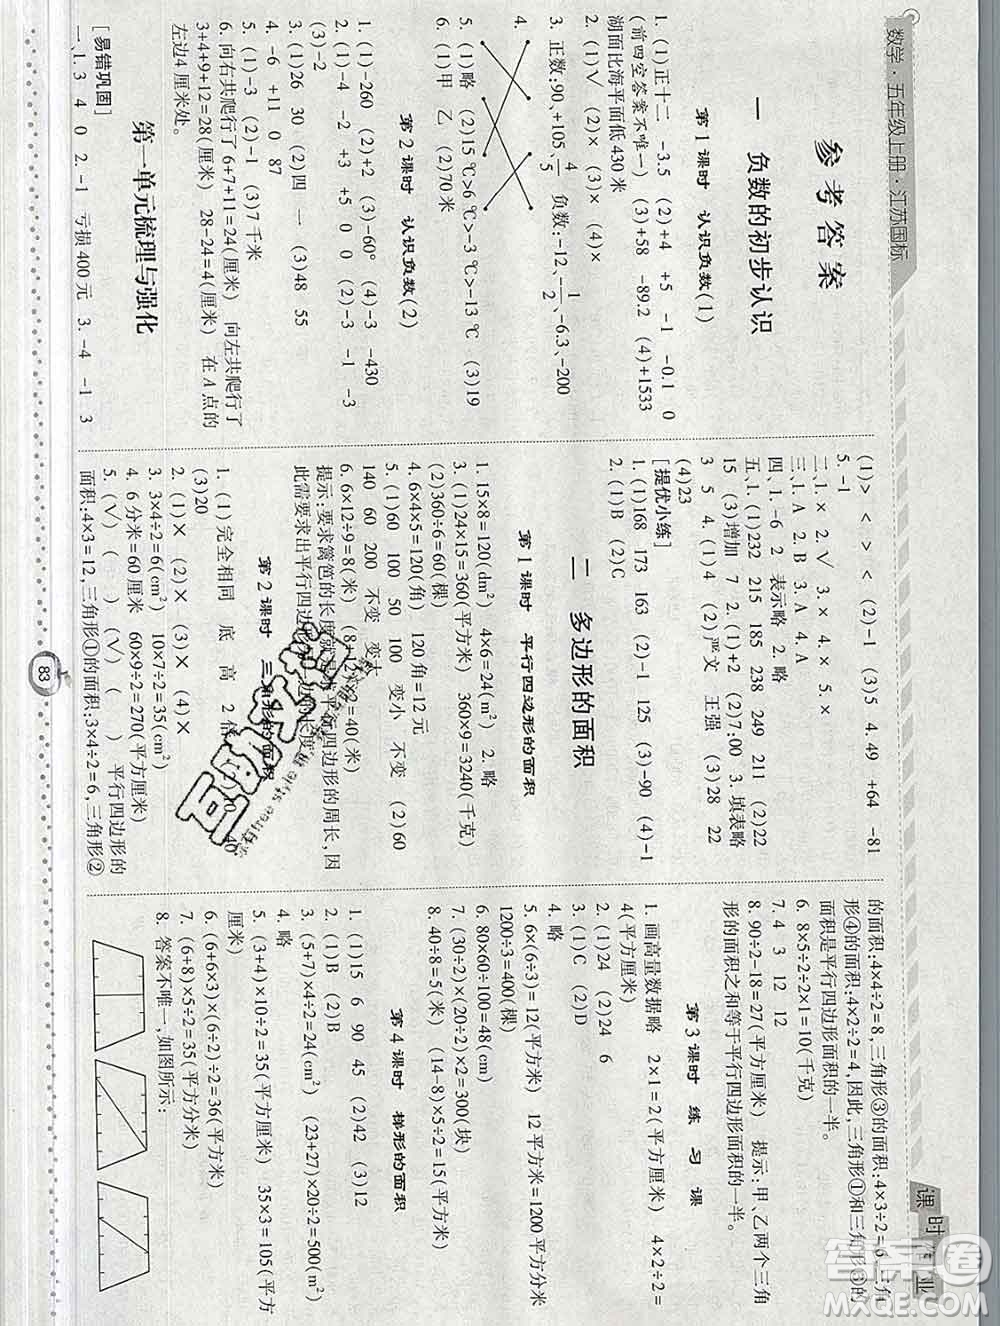 数学·五年级上册·江苏国标
课时作业
参考答案
一 负数的初步认识
第1课时 认识负数(1)
1. (1)正十二 -3.5 (2)+4 +5 -1 -0.1 0
(前四空答案不唯一) (3)+58 -89.2 (4)+1533
湖面比海平面低430米
2. (1)√ (2)× (3)× (4)×
3. 正数:90、+105、4/5 负数:-12、-1/2、-6.3、-200
4.
5. (1)略 (2)15℃>6℃>-3℃>-13℃ (3)19
6. (1)甲 乙 (2)70米
第2课时 认识负数(2)
1. (1)-260 (2)+2 (3)-60° (4)-3 -430
2. (1)-4 -2 +3 +5 0 0 (2)-1 -1 -3
(3)-2
3. (1)26 30 (2)四 一 (3)48 55
4. -6 +11 0 87
5. (1)-3 (2)-1 (3)7千米
6. 向右共爬行了6+7+11=24(厘米) 向左共爬行了
3+4+9+12=28(厘米) 28-24=4(厘米) 在A点的
左边4厘米处。
第一单元梳理与强化
[易错巩固]
一、1. 3 4 0 2. -1 亏损400元 3. -4 -1 3
(1)> < > < (2)-1 (3)5 4. 49 +64 -81
5. -1
二、1. × 2. √ 3. × 4. × 5. ×
三、1. A 2. B 3. A 4. A
四、1. -6 2 表示略 2. 略
五、1. (1)232 215 185 238 249 211 (2)22
15 (3)增加 7 2. (1)+2 (2)7:00 3. 填表略
3 5 4. (1)4 (2)严文 王强 (3)28 22
(4)23
[提优小练]
1. (1)168 173 163 (2)-1 125 (3)-90 (4)-1
2. (1)B (2)C
二 多边形的面积
第1课时 平行四边形的面积
1. 15×8=120(dm²) 4×6=24(m²) 2. 略
3. (1)24×15=360(平方米) 360×9=3240(千克)
(2)360÷6=60(棵)
4. 6×4×5=120(角) 120角=12元
5. (1)60 100 50 100 变小 不变 (2)60
140 60 200 不变 变大
6. 6×12÷9=8(米) (8+12)×2=40(米)
提示:要求篱笆的长度就是求平行四边形的周长,因
此需要求出平行四边形边的长度。
第2课时 三角形的面积
1. (1)完全相同 底 高 2倍
(3)20
2. (1)× (2)× (3)× (4)×
3. 3×4÷2=6(cm²) 10×7÷2=35(cm²)
4. 6分米=60厘米 60×9÷2=270(平方厘米)
5. (√) ( ) (√) ( ) 平行四边形的
面积:4×3=12,三角形①的面积:3×4÷2=6,三角形②
的面积:4×4÷2=8,三角形③的面积:4×3÷2=6,三角
形④的面积:4×2÷2=4,因此,三角形①和三角形③的
面积是平行四边形面积的一半。
6. 8×5÷2÷2×1=10(千克)
7. 4 3 12 12
8. 90÷2-18=27(平方厘米) 提示:甲、乙两个三角
形的面积之和等于平行四边形面积的一半。
第3课时 练习课
1. 画高量数据略 2×1=2(平方厘米) 4×2÷2=
4(平方厘米)
2. (1)24 (2)24 6
3. (1)C (2)D
4. 略
5. 6×(6÷3)=12(平方米) 12平方米=1200平方分米
1200÷3=400(棵)
6. 80×60÷100=48(cm)
7. (30÷2)×(20÷2)×2=300(块)
8. 40÷8=5(米) (14-8)×5÷2=15(平方米)
第4课时 梯形的面积
1. (1)15 6 90 45 (2)42 (3)12
2. (1)B (2)B
3. (5+7)×4÷2=24(cm²) (23+27)×20÷2=500(cm²)
4. 略
5. (3+4)×10÷2=35(平方厘米) 35×3=105(平方
厘米)
6. (6+6×3)×(6÷2)÷2=36(平方厘米)
7. (6+8)×5÷2=35(平方分米)
8. 答案不唯一,如图所示:
83
答案圈
MXQE.COM